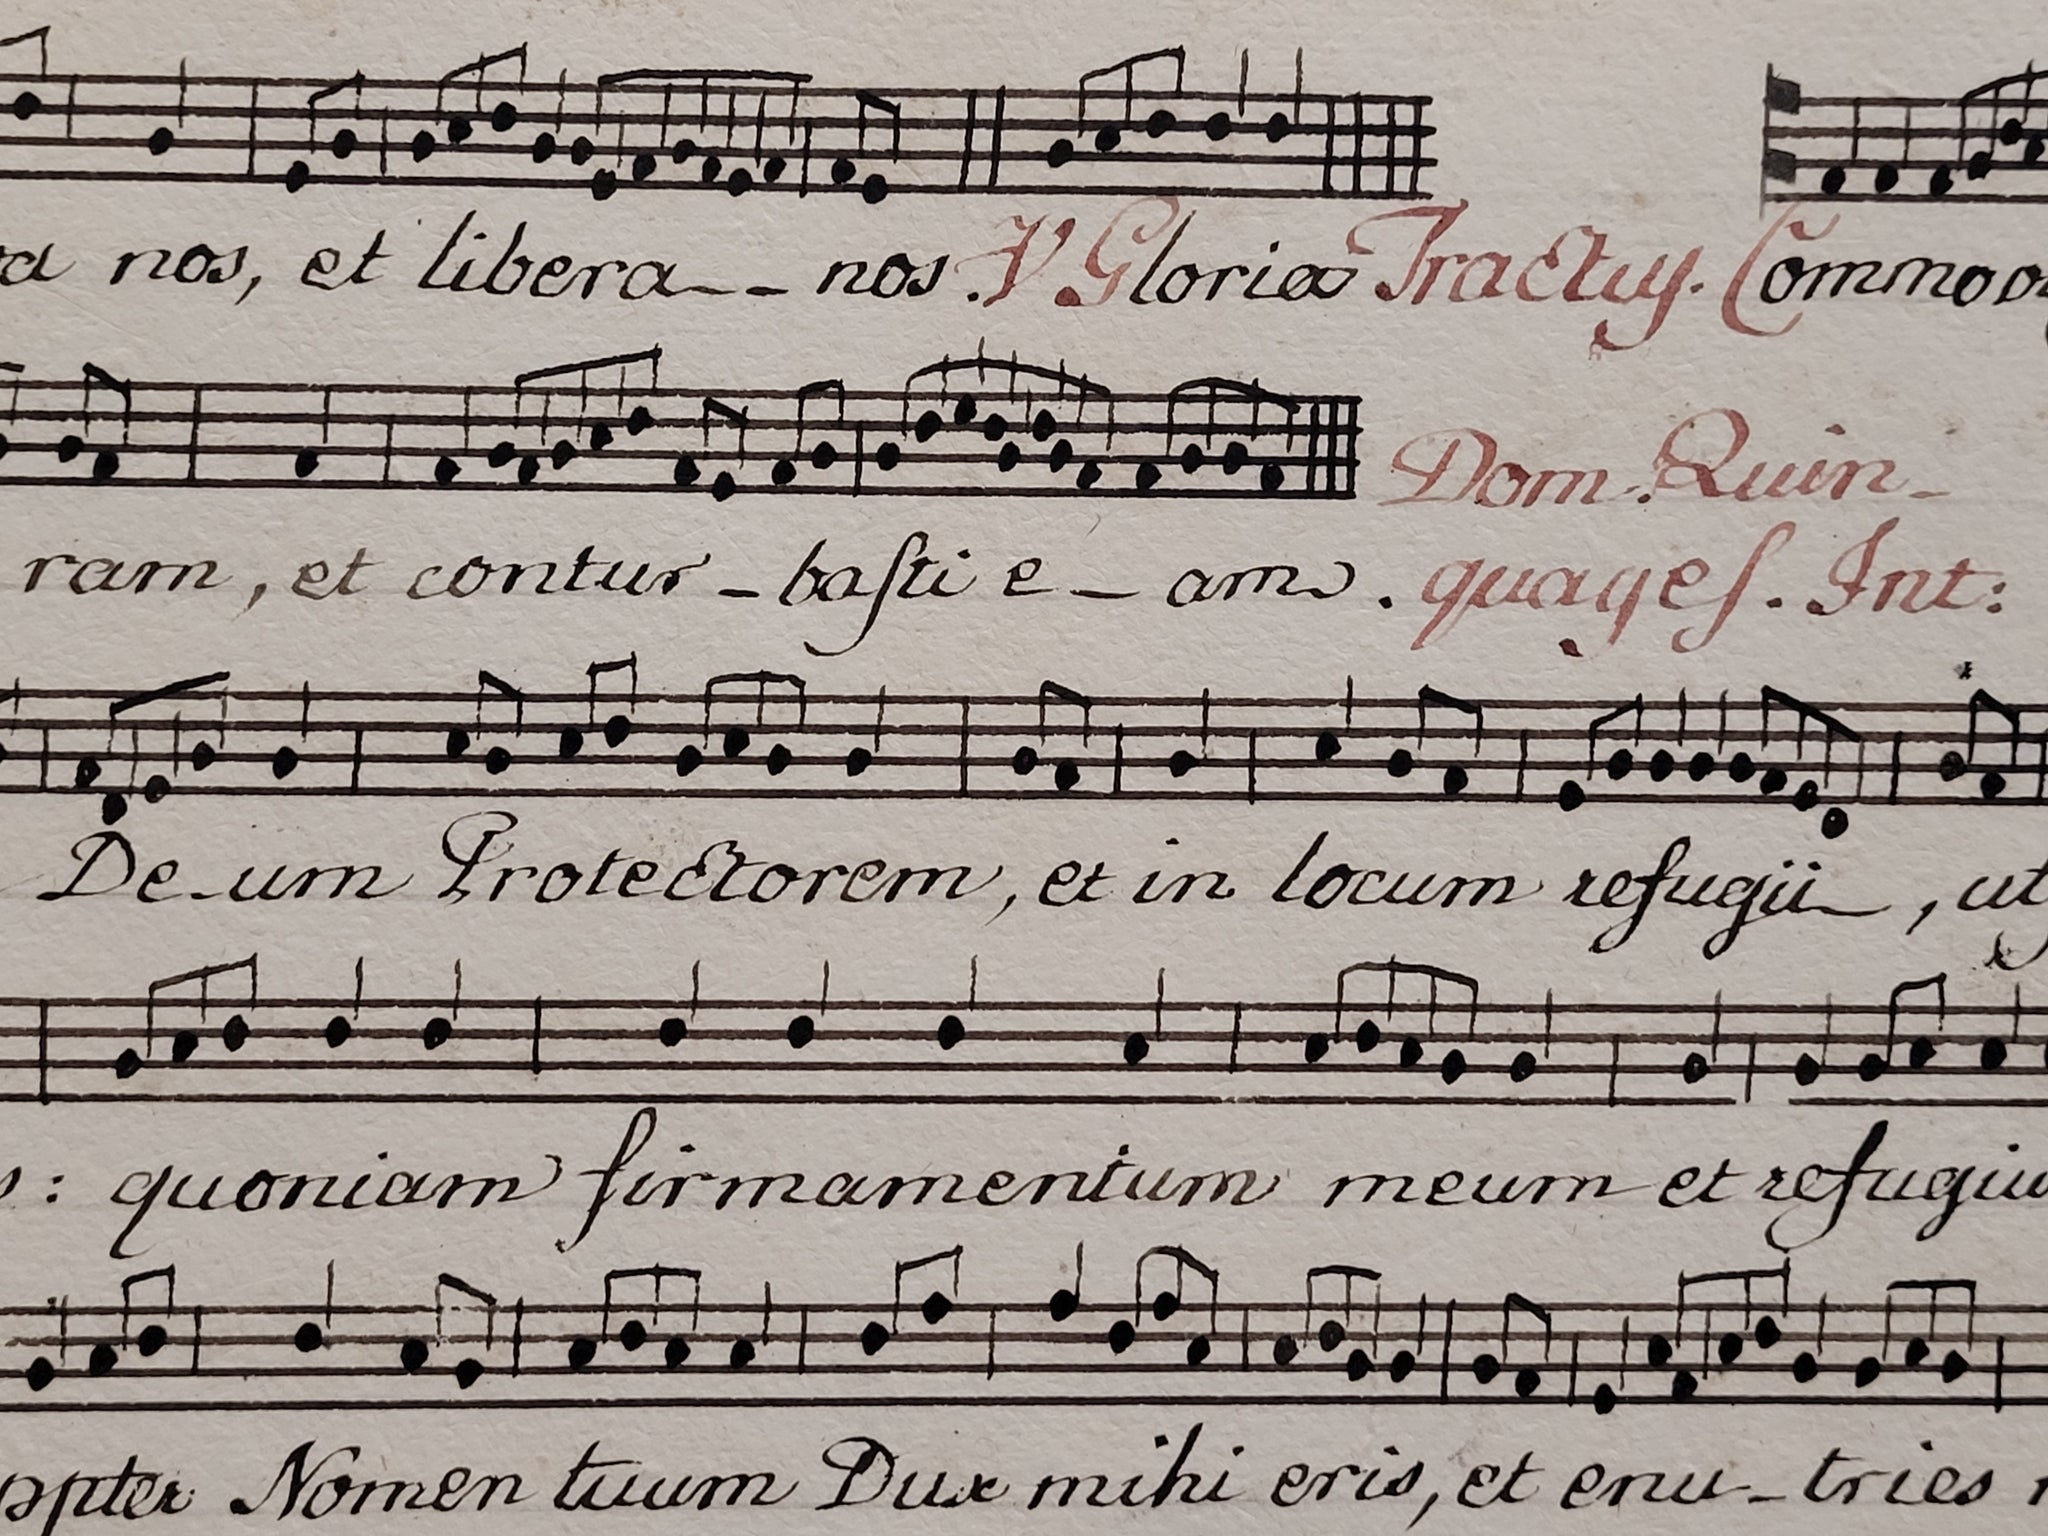 nos, et libera-- nos. V Gloria Tractus. Commo
ram, et contur-basti e-am. Dom. Quin-
quages. Int:
De-um Protectorem, et in locum refugii, ut
: quoniam firmamentum meum et refugiu
pter Nomen tuum Dux mihi eris, et enu-tries